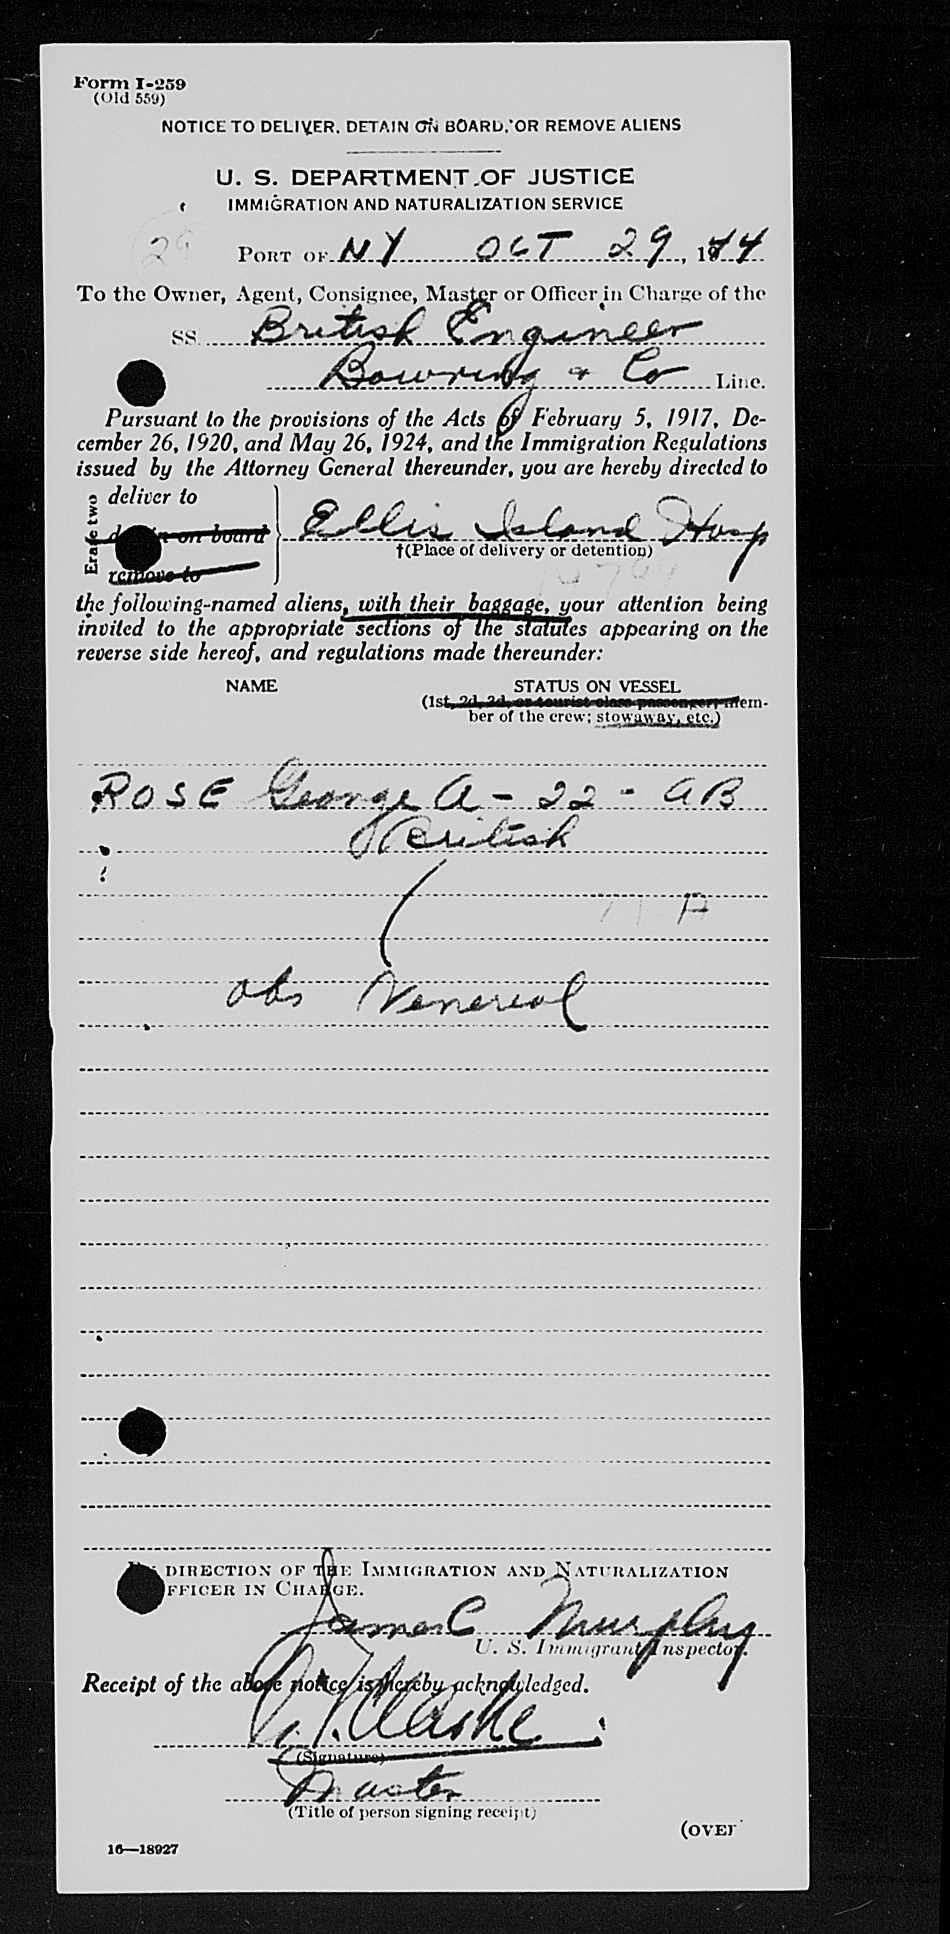 Form I-259
(Old 559)
NOTICE TO DELIVER, DETAIN ON BOARD, OR REMOVE ALIENS
U. S. DEPARTMENT OF JUSTICE
IMMIGRATION AND NATURALIZATION SERVICE
29
PORT OF NY OCT 29, 1944
To the Owner, Agent, Consignee, Master or Officer in Charge of the
SS. British Engineer
Bowring & Co Line.
Pursuant to the provisions of the Acts of February 5, 1917, De-
cember 26, 1920, and May 26, 1924, and the Immigration Regulations
issued by the Attorney General thereunder, you are hereby directed to
Erase two
deliver to
on board
remove to
Ellis Island Hosp
†(Place of delivery or detention)
the following-named aliens, with their baggage, your attention being
invited to the appropriate sections of the statutes appearing on the
reverse side hereof, and regulations made thereunder:
NAME STATUS ON VESSEL
(1st, 2d, 3d, or tourist class passenger; mem-
ber of the crew; stowaway, etc.)
ROSE George A - 22 - AB
British
A
obs Venereal
DIRECTION OF THE IMMIGRATION AND NATURALIZATION
FFICER IN CHARGE.
James C Murphy
U. S. Immigrant Inspector.
Receipt of the above notice is hereby acknowledged.
Clarke
(Signature)
Master
(Title of person signing receipt)
(OVER
16—18927